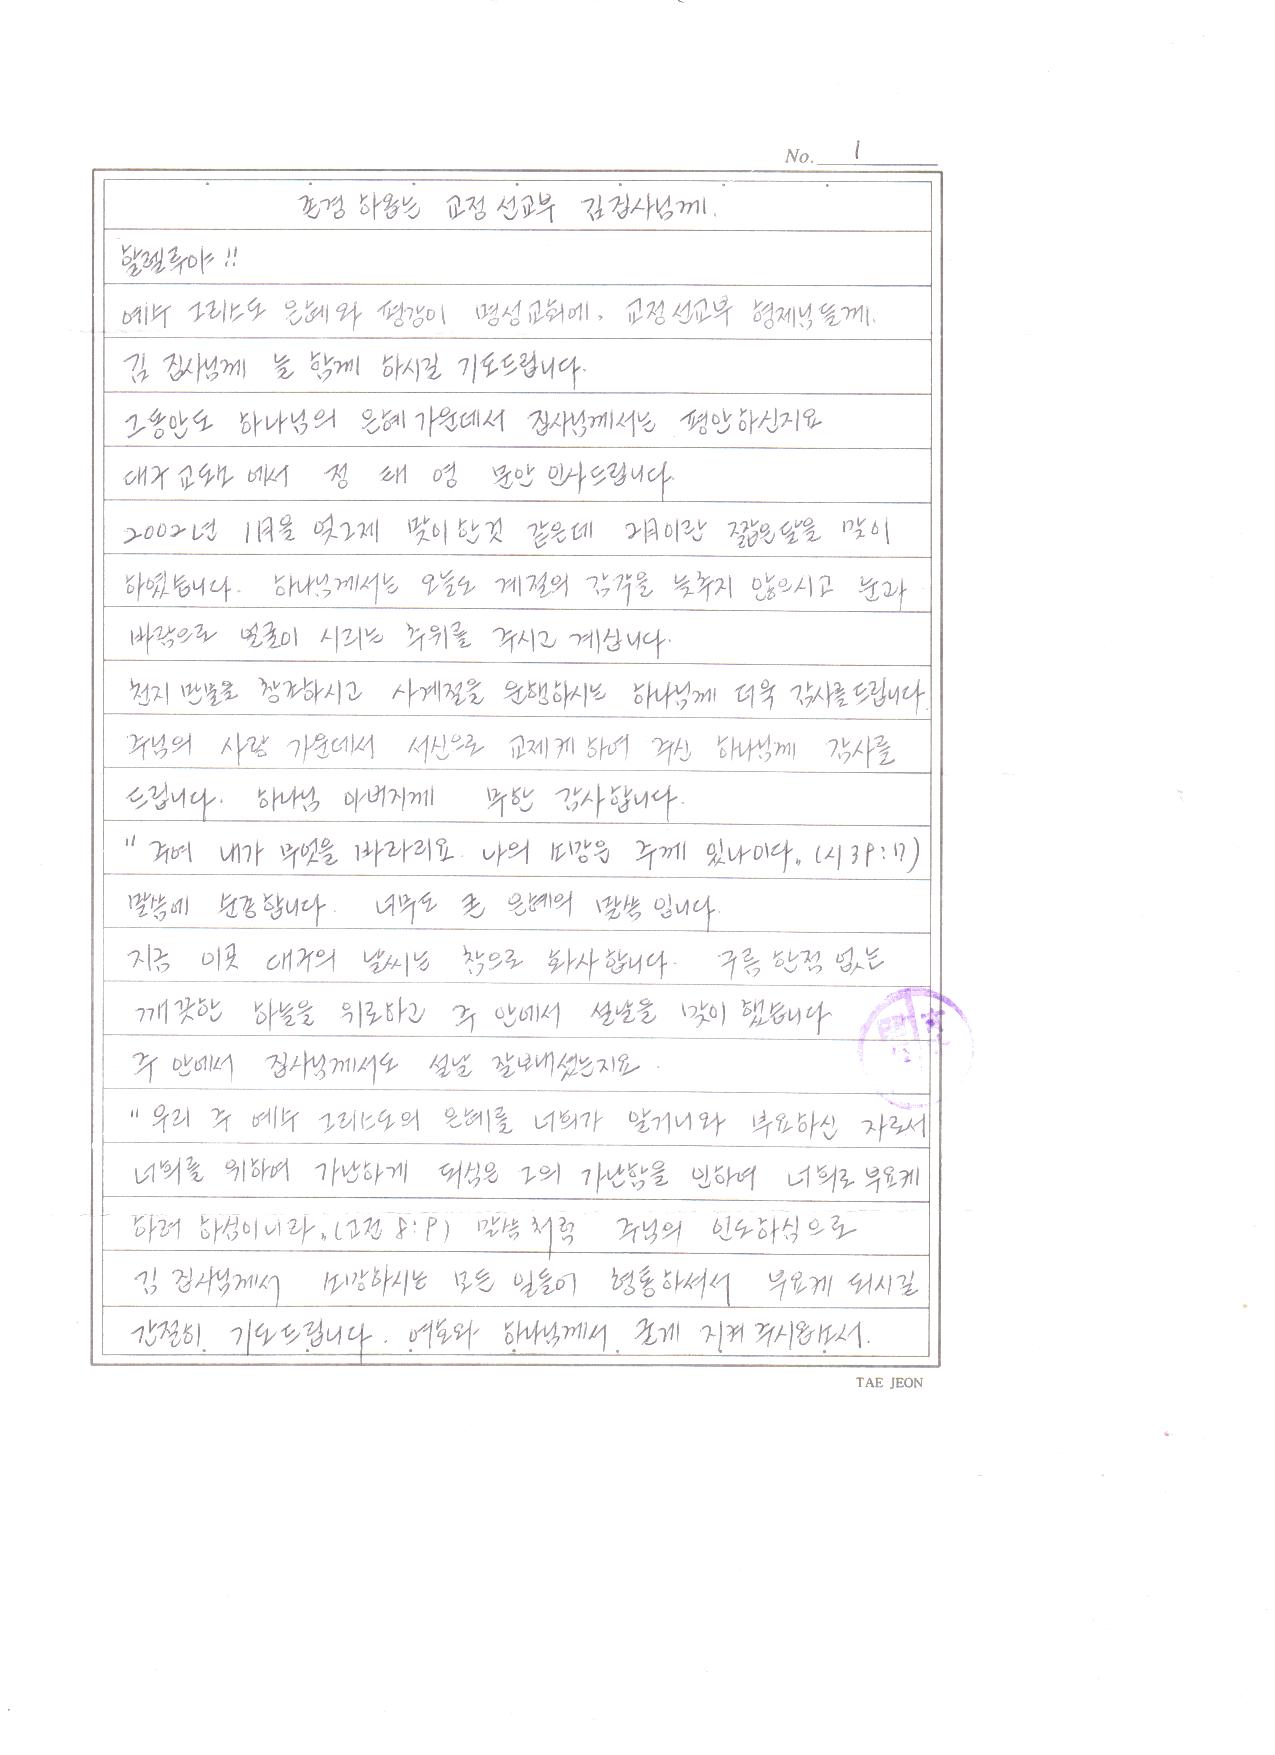 No. 1
존경 하옵는 교정 선교부 김 집사님께.
할렐루야!!
예수 그리스도 은혜와 평강이 명성교회에, 교정선교부 형제님들께.
김 집사님께 늘 함께 하시길 기도드립니다.
그동안도 하나님의 은혜 가운데서 집사님께서는 평안하신지요
대구 교도소에서 정 태 영 문안 인사드립니다.
2002년 1月을 엊그제 맞이한것 같은데 2月이란 짧은달을 맞이
하였습니다. 하나님께서는 오늘도 계절의 감각을 늦추지 않으시고 눈과
바람으로 얼굴이 시리는 추위를 주시고 계십니다.
천지 만물을 창조하시고 사계절을 운행하시는 하나님께 더욱 감사를 드립니다.
주님의 사랑 가운데서 서신으로 교제케 하여 주신 하나님께 감사를
드립니다. 하나님 아버지께 무한 감사합니다.
"주여 내가 무엇을 바라리요 나의 희망은 주께 있나이다" (시 39:7)
말씀에 순종합니다. 너무도 큰 은혜의 말씀 입니다.
지금 이곳 대구의 날씨는 참으로 화사합니다. 구름 한점 없는
깨끗한 하늘을 위로하고 주 안에서 설날을 맞이 했습니다
주 안에서 집사님께서도 설날 잘보내셨는지요.
"우리 주 예수 그리스도의 은혜를 너희가 알거니와 부요하신 자로서
너희를 위하여 가난하게 되심은 그의 가난함을 인하여 너희로 부요케
하려 하심이니라" (고전 8:9) 말씀처럼 주님의 인도하심으로
김 집사님께서 희망하시는 모든 일들이 형통하셔서 부요케 되시길
간절히 기도드립니다. 여호와 하나님께서 굳게 지켜 주시옵소서.
TAE JEON